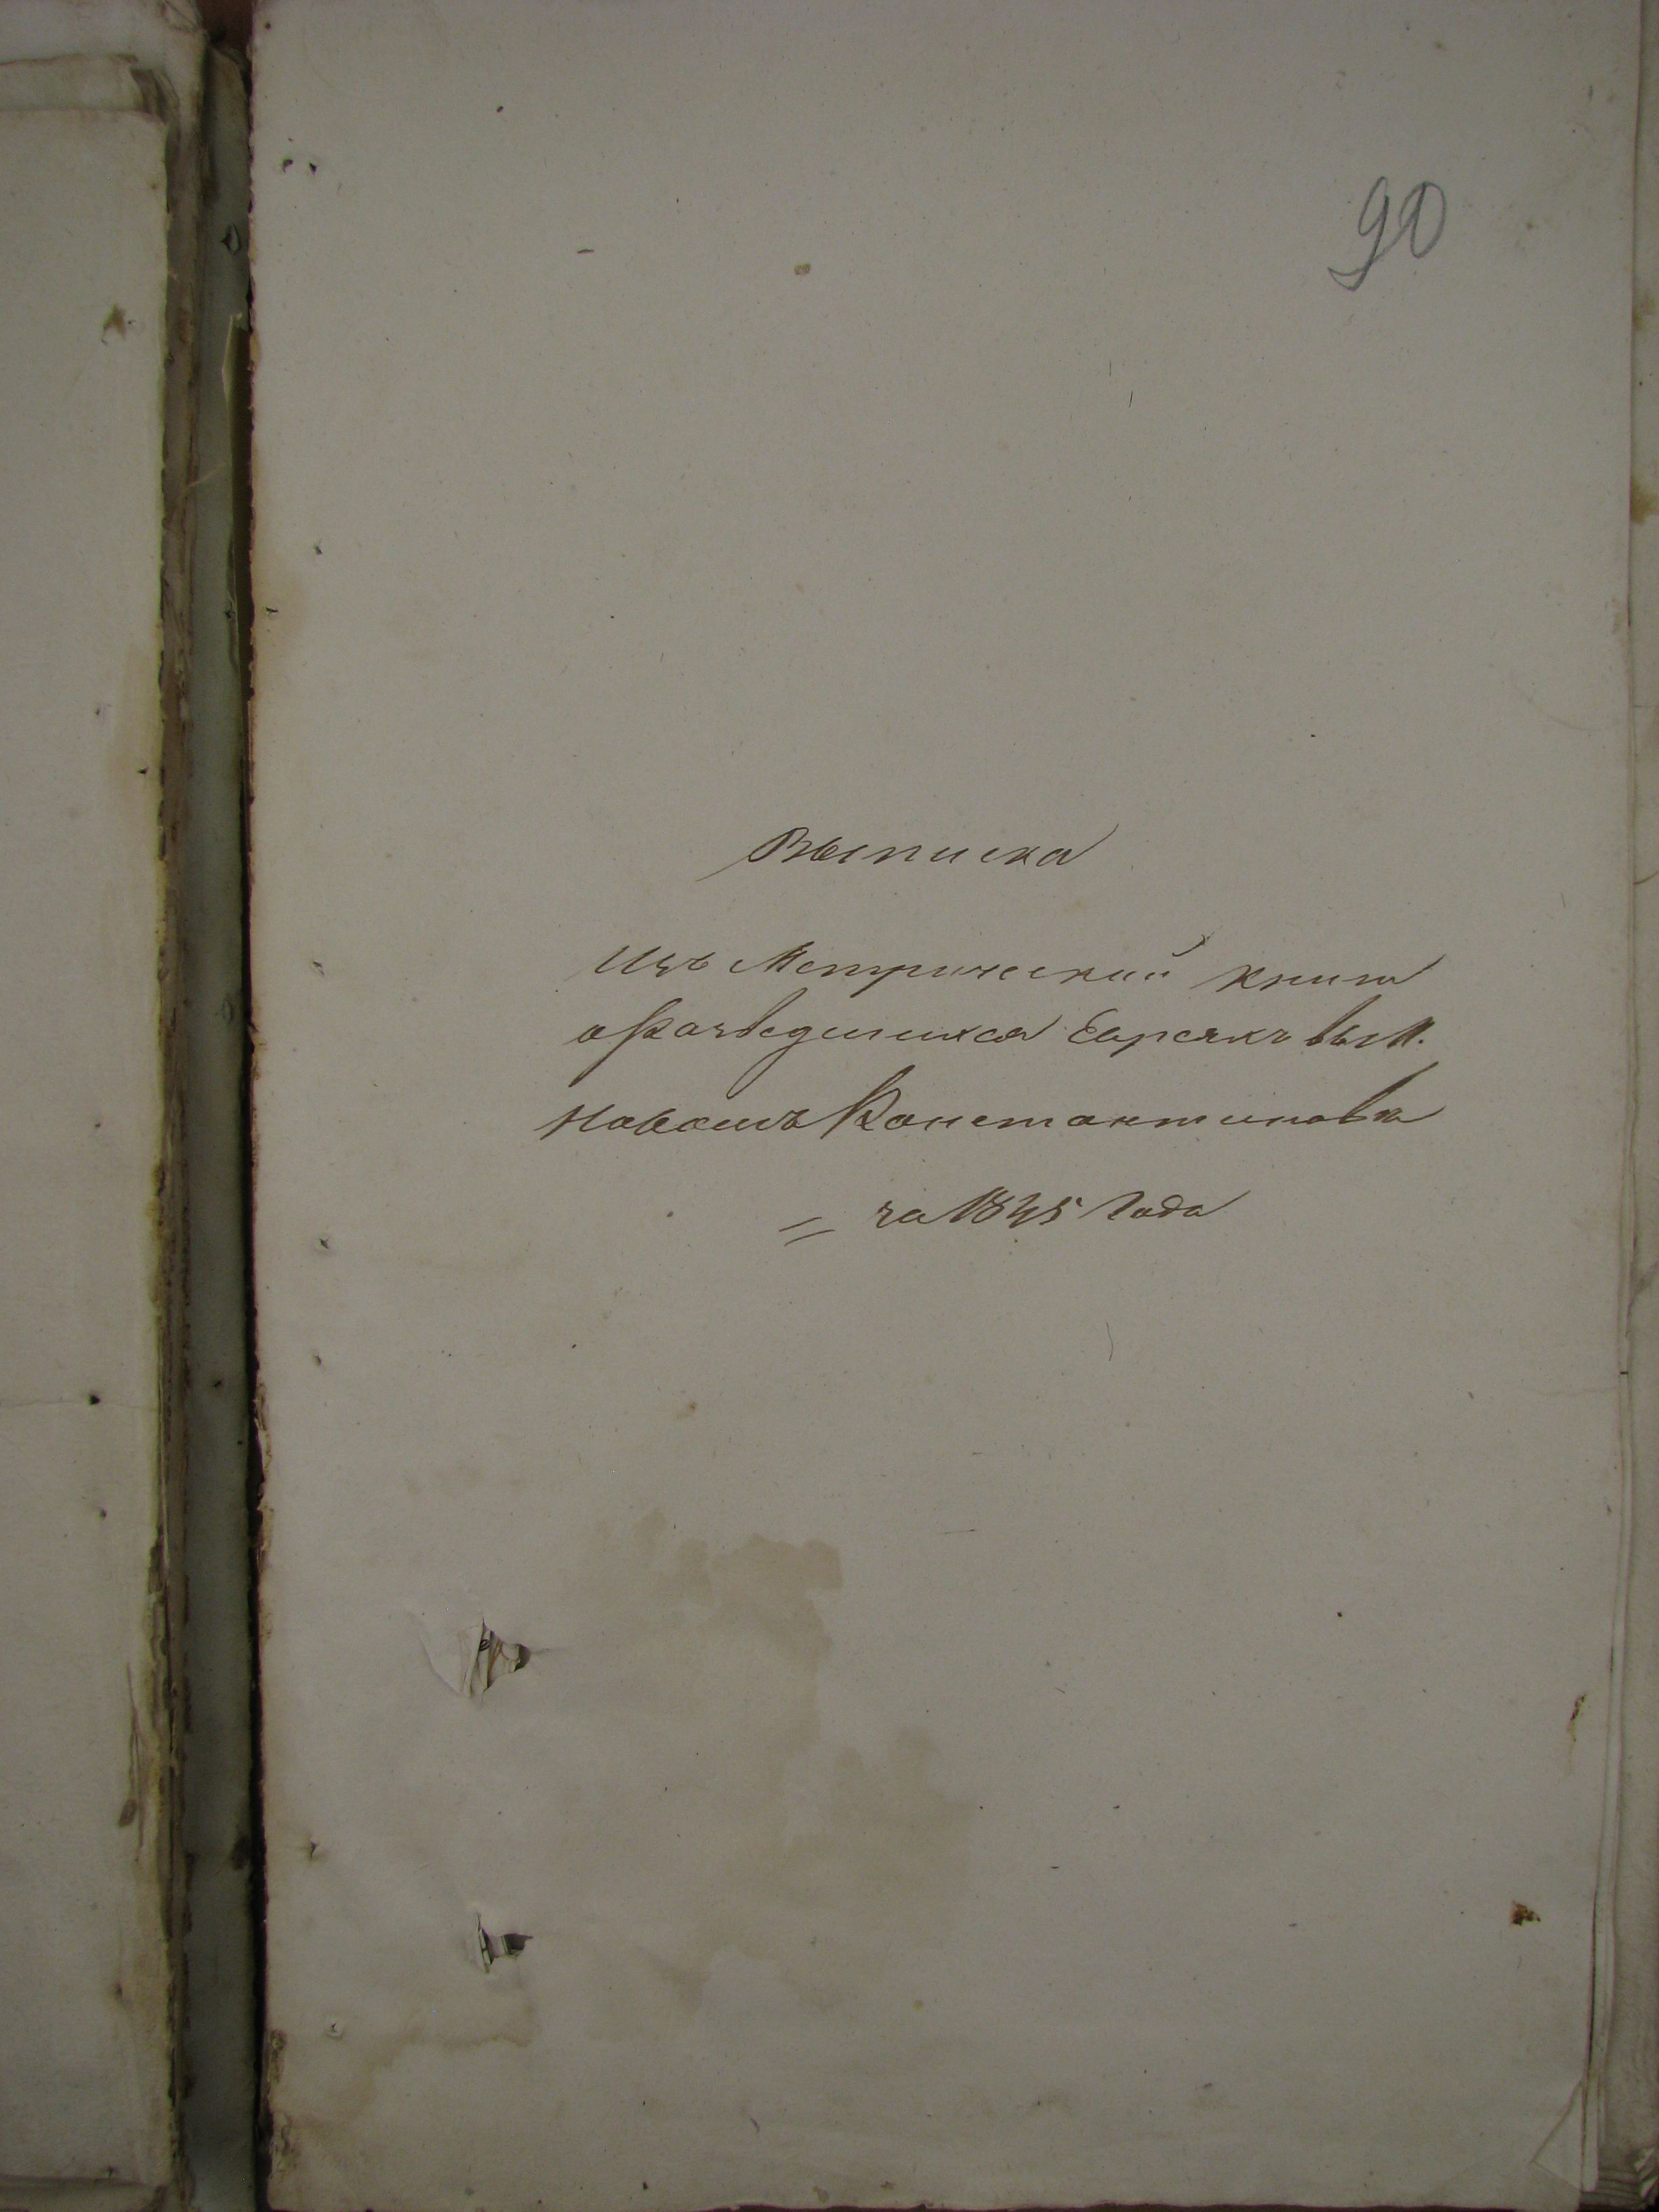 90
Выписка
Изъ Метрической книги
о Разведшихся Евреяхъ вым.
Новомъ Константиновѣ
= за 1845 Года